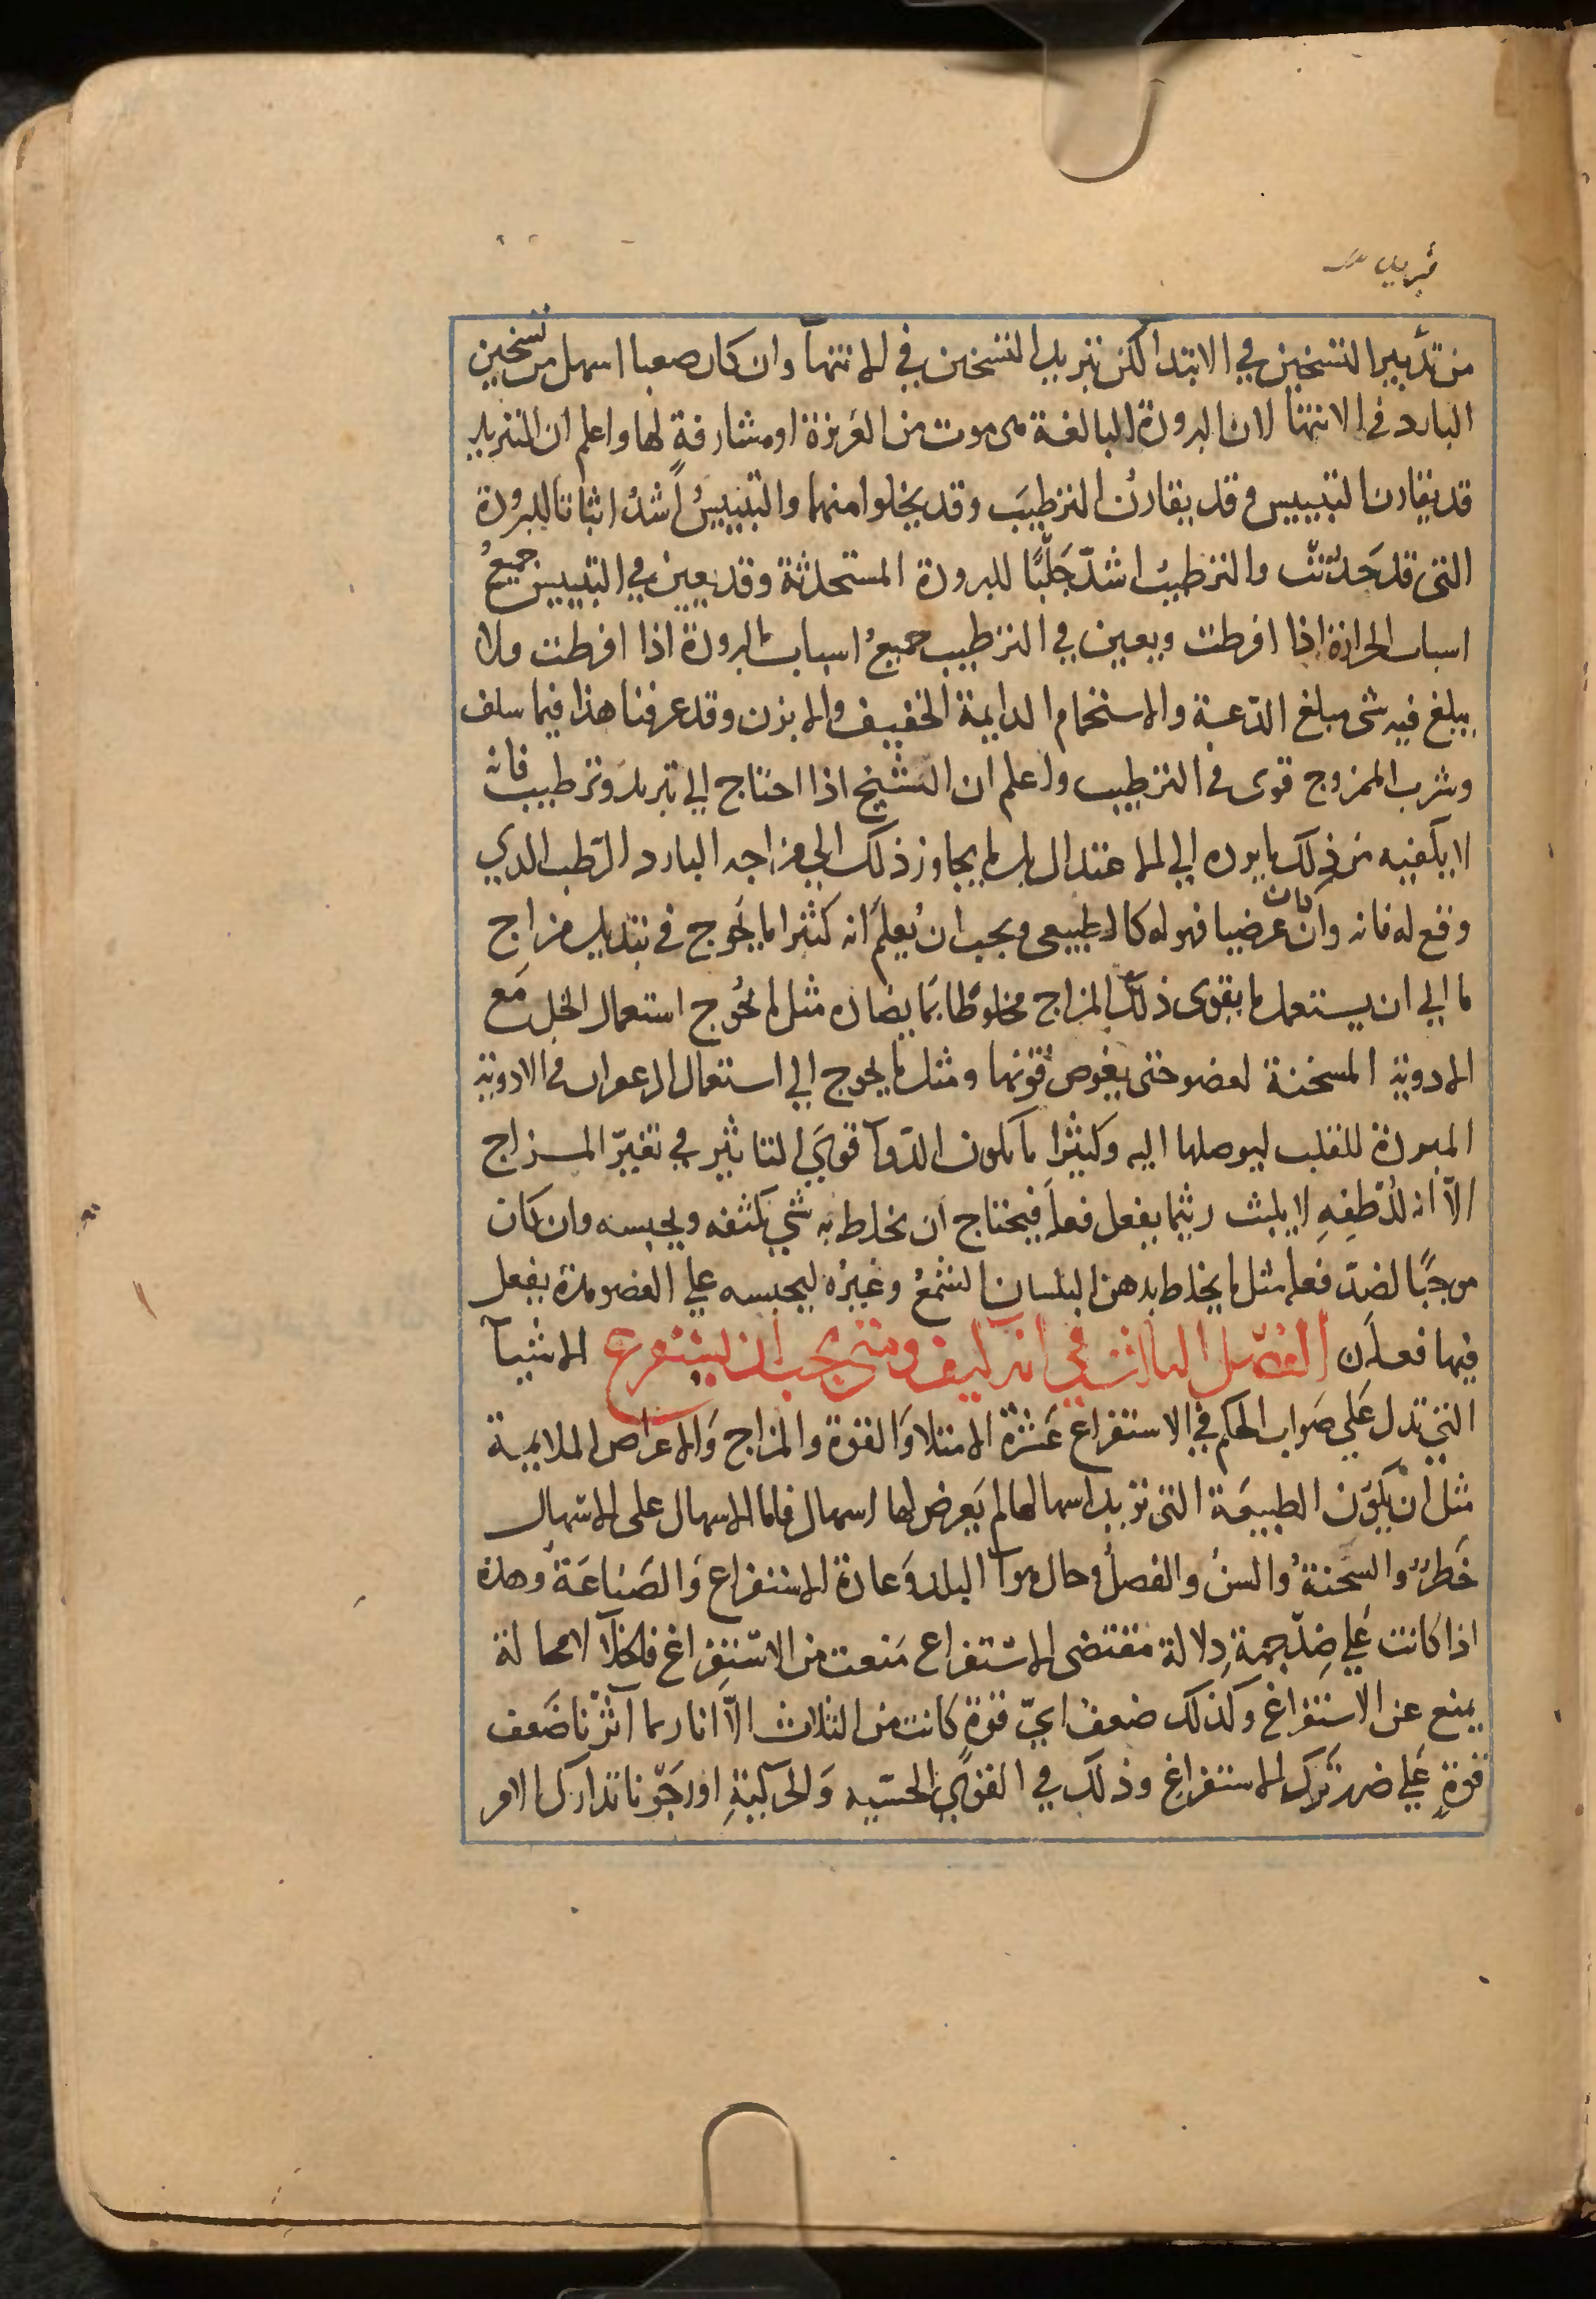 تبريد
من تدبير التسخين في الابتدا لكن تبريد التسخين في الانتهآ وان كان صعبا اسهل من تسخين
البارد في الانتها لان البرودة البالغة هى موت من الغريزة او مشارفة لها واعلم ان التبريد
قد يقارن التيبيس وقد يقارن الترطيبَ وقد يخلوا منهما والتيبيسُ اشدُ اثباتا للبرودة
التى قد حَدثتْ والترطيبُ اشدّ جَلبًا للبرودة المستحدثة وقد يعين في التيبيس جميعُ
اسباب الحرارة اذا افرطت ويعين في الترطيب جميعُ اسباب البرودة اذا افرطت ولا
يبلغ فيه شى مبلغ الدّعة والاستحمام الدايمة الخفيف والابزن وقد عرفنا هذا فيما سلف
وشرب الممزوج قوى في الترطيب واعلم ان الشيخ اذا احتاج الي تبريد وترطيب فانه
لا يكفيه من ذلك ما يرده الي الاعتدال بل ما يجاوز ذلك الي مزاجه البارد الرّطب الدي
وقع له فانه وان كان عرضيا فهو له كالطبيعى ويجب ان يُعلمَ انه كثيرا ما يُحوج في تبديل مزاج
ما الي ان يستعمل ما يقوى ذلك المزاج مخلوطًا بما يضاده مثل ما يُحوج استعمال الخل مَع
الادوية المسخنة لعضو حتى يغوص قوتها ومثل ما يحوج الي استعمال الزعفران في الادوية
المبردة للقلب ليوصلها اليه وكثيرًا ما يكون الدّوآ قويَ التاثير في تغيّر المزاج
الاّ انه للُطفِهِ لا يلبث ريثما يفعل فعلَه فيحتاج ان يخلط به شي يكثفه ويحبسه وان كان
موجبًا لضدّ فعله مثل ما يخلط بدهن البلسان الشمعُ وغيرُه ليحبسه علي العضو مدة يفعل
فيها فعله ن الفصل الثالث في انه كيف ومتى يجب ان يستفرغ الاشيآ
التي تدل عَلي صَواب الحكم في الاستفراغ عَشرَة الامتلا وَالقوة والمزاج وَالاعراض الملايمة
مثل ان يكون الطبيعَة التى تريد اسهالها لم يَعرض لها اسهال فان الاسهال على الاسهال
خَطرٌ والسَّحنةُ والسنُ والفصلُ وحال هوآ البلد وَعادة الاستفراغ وَالصَناعَة وهذه
اذا كانت عَلي ضِدّ جهةِ دِلالة مقتضى الاستفراع مَنعت من الاستفراغ فالخلآ لا محالة
يمنع عن الاستفراغ وكذلك ضعف ايّ قوةٍ كانت من الثلاث الاّ انا ربما آثرْنا ضَعف
قوةٍ عَلي ضرر تَرك الاستفراغ وذلك في القوي الحسّيه وَالحركيةِ اورَجَونا تدارك الامر